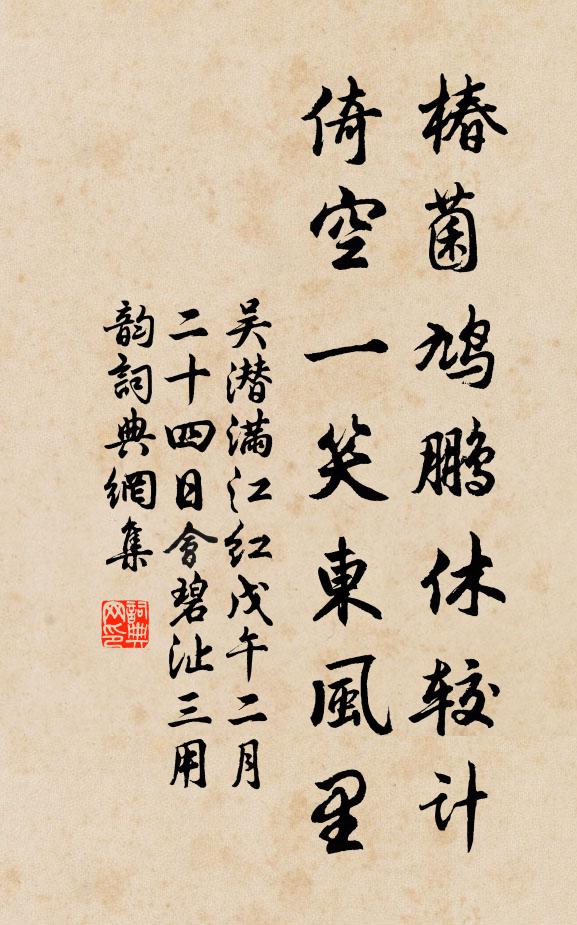 椿菌鸠鹏休较计
倚空一笑東風里
吴潜满江红戊午二月
二十四日會碧沚三用
韵詞典網集
詞典网印